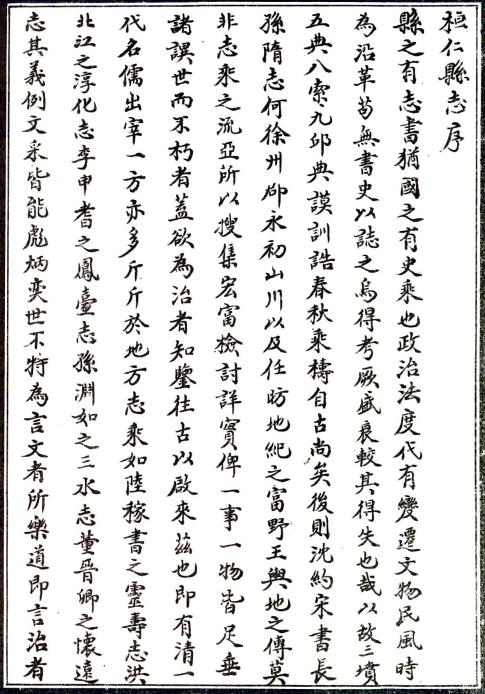 桓仁縣志序
縣之有志書猶國之有史乘也政治法度代有變遷文物民風時
為沿革苟無書史以誌之烏得考厥盛衰較其得失也哉以故三墳
五典八索九邱典謨訓誥春秋乘檮自古尚矣後則沈約宋書長
孫隋志何徐州郡永初山川以及任昉地紀之富野王輿地之傳莫
非志乘之流亞所以搜集宏富檢討詳實俾一事一物皆足垂
諸謨世而不朽者蓋欲為治者知鑒往古以啟來茲也即有清一
代名儒出宰一方亦多斤斤於地方志乘如陸稼書之靈壽志洪
北江之淳化志李申耆之鳳臺志孫淵如之三水志董晉卿之懷遠
志其義例文采皆能彪炳奕世不特為言文者所樂道即言治者